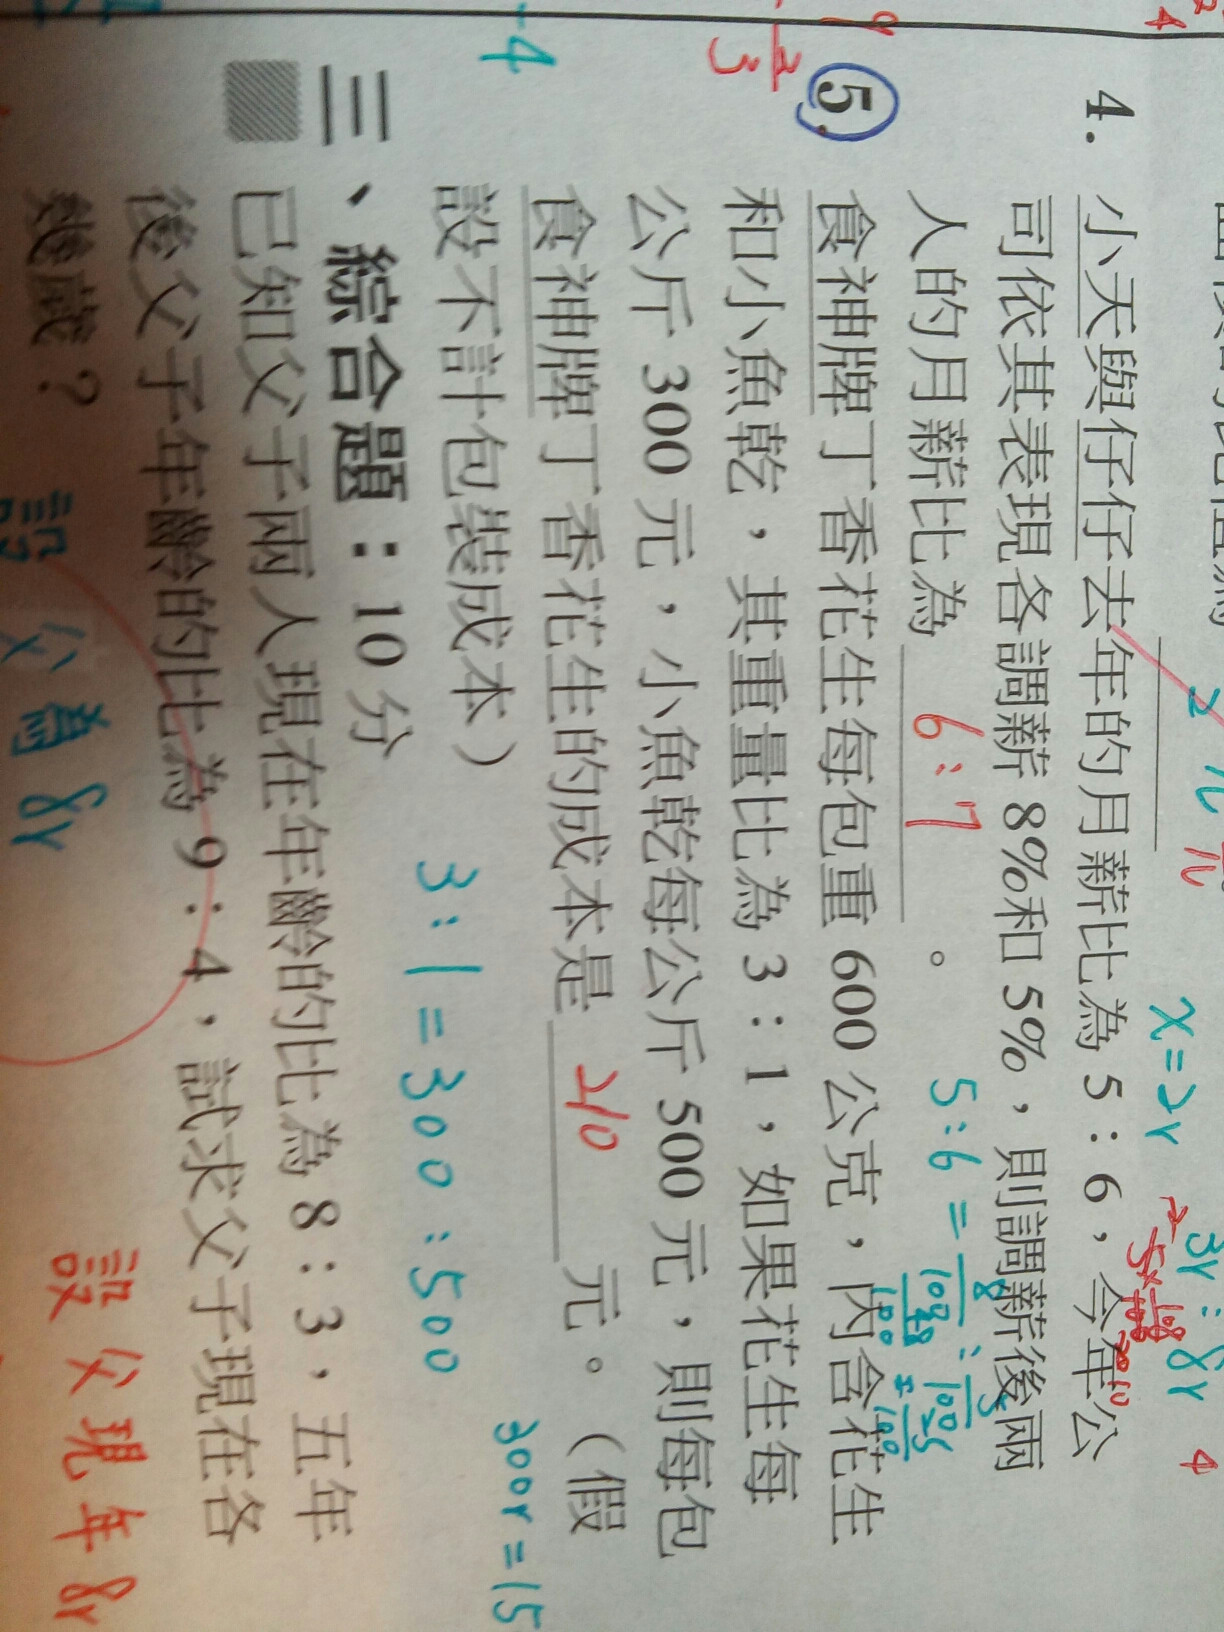 4. 小天與仔仔去年的月薪比為 5：6，今年公
司依其表現各調薪 8%和 5%，則調薪後兩
人的月薪比為 6:7 。
5:6 =
5. 食神牌丁香花生每包重 600 公克，內含花生
和小魚乾，其重量比為 3：1，如果花生每
公斤 300 元，小魚乾每公斤 500 元，則每包
食神牌丁香花生的成本是 210 元。（假
設不計包裝成本）
300r=15
3:1=300:500
三、綜合題：10 分
已知父子兩人現在年齡的比為 8：3，五年
後父子年齡的比為 9：4，試求父子現在各
幾歲？
設父為8r
設父現年8r
x=2r
3r:8r
4
-4